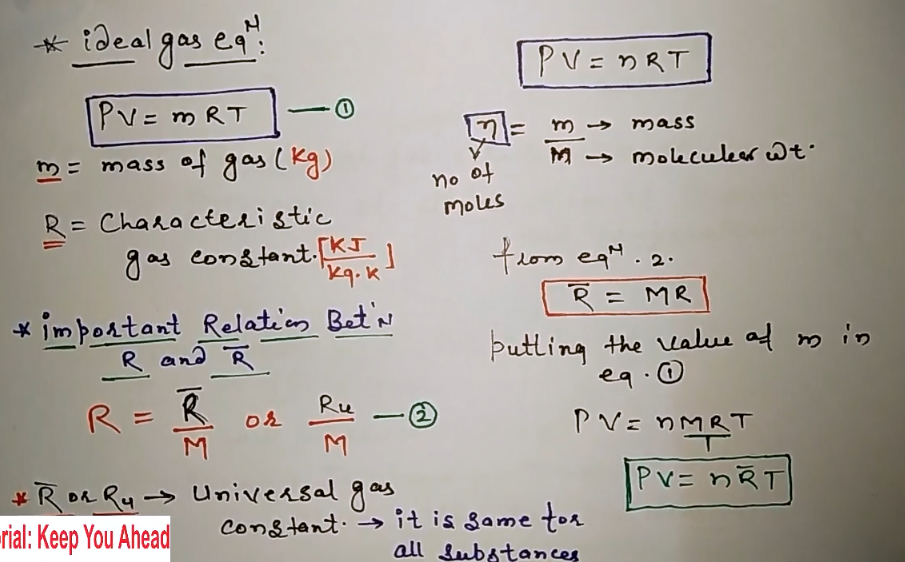 * ideal gas eqⁿ:
PV = mRT — ①
m = mass of gas (Kg)
R = Characteristic
gas constant. [KJ/Kg.K]
* important Relation Bet'n
R and R̅
R = R̅/M or Ru/M — ②
* R̅ or Ru → Universal gas
constant. → it is same for
all substances
PV = nRT
n = m/M
m → mass
M → moleculer wt.
no of
moles
from eqⁿ. 2.
R̅ = MR
putting the value of m in
eq. ①
PV = nMRT
PV = nR̅T
rial: Keep You Ahead